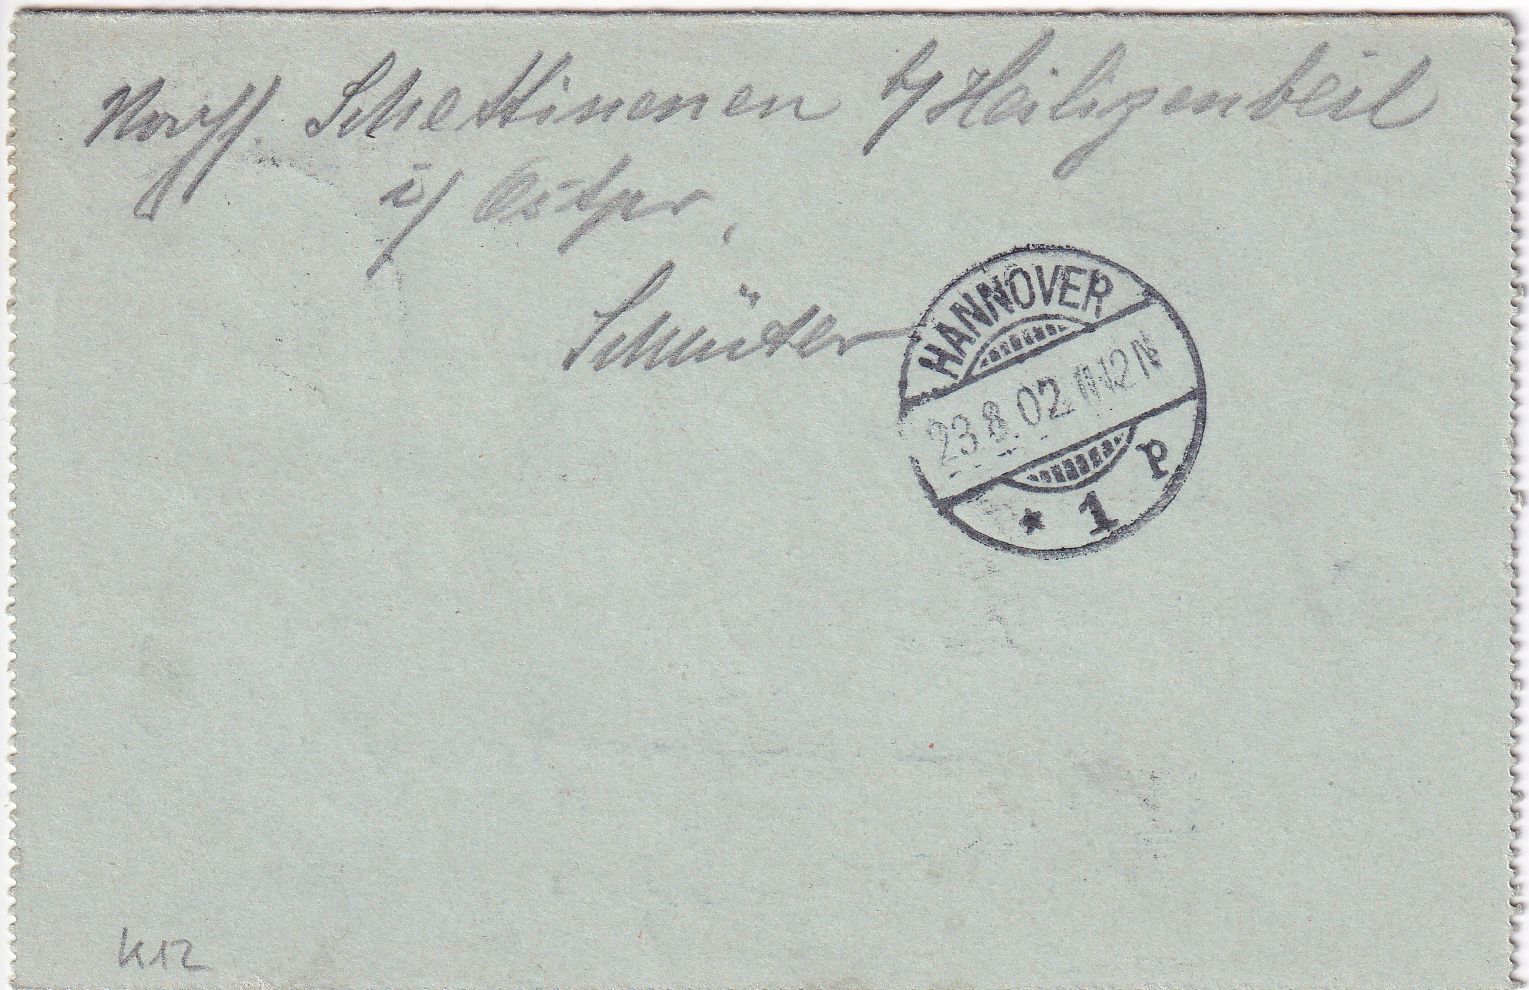 Schettinenen b/ Heiligenbeil
i/ Ostpr.
Schlüter
HANNOVER
23.8.02.11-12N
* 1 p
K12